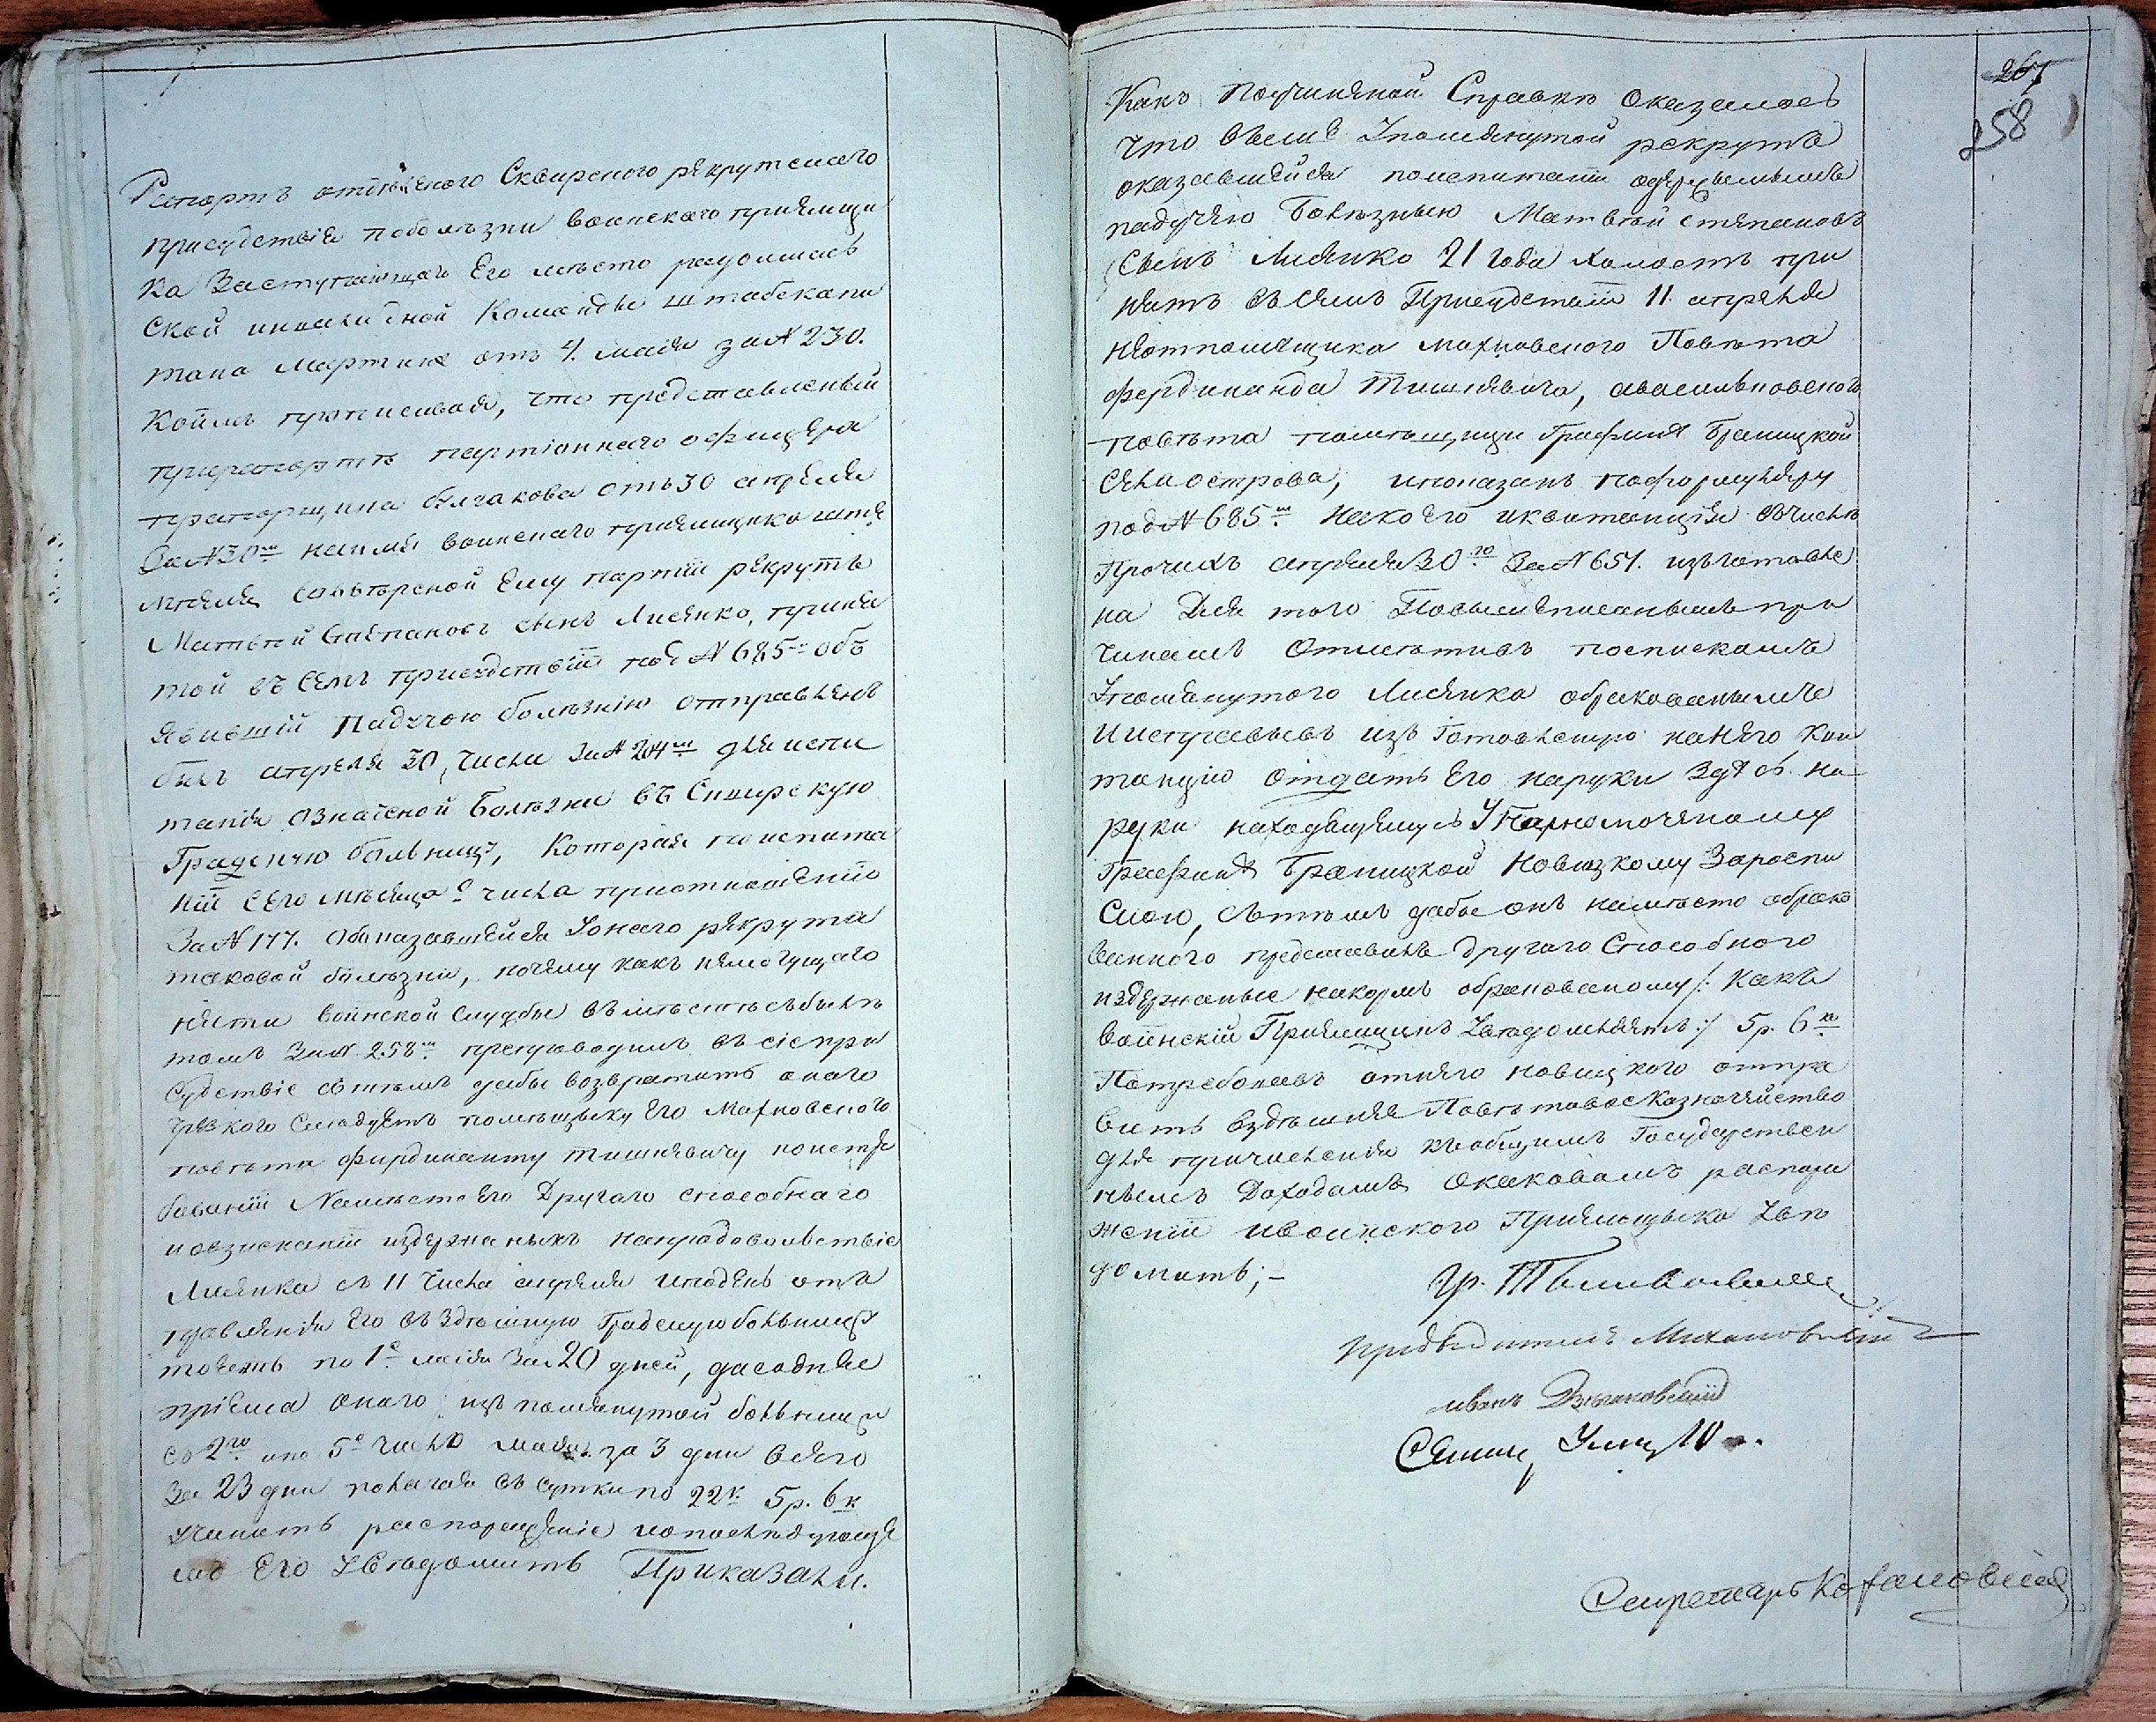 Рапортъ отдѣленого Сквирского рекрутского
присудствія поболѣзни воинского приемщи
ка Заступающаго Его мѣсто радомысль
ской инвалидной Команды штабскапи
тана Мартина отъ 4. маія за № 230.
Коимъ прописывая, что представленный
прирапортѣ партіоннаго офицера
прапорщика булгакова отъ 30 апреля
За № 30м наимя воинскаго приемщика
ввѣренной Ему партіи рекрутъ
Матвей Степановъ сынъ Лисенко, приня
той въ семъ присудствіи под № 685м объ
явившій падучою болезнію отправленъ
былъ апреля 30, числа За № 204м для испи
танія означеной Болѣзни въ Сквирскую
Градскую больницу, Которая поиспыта
ніи сего мѣсяца 5 числа приотношеніи
За № 177. Обоказавшейся Уонаго рекрута
таковой болѣзни, почему какъ немогущаго
нести воинской службы вмѣстѣ събилѣ
томъ За № 258м препроводилъ въ сіе при
судствіе сътемъ дабы возвратить онаго
чрезкого Следуетъ помѣщыку Его Махновского
повѣта Фирдинанту Тишкевичу поистре
бованіи Намѣсто Его Другаго способнаго
иовзысканіи издержаныхъ напродовольствіе
Лисенка съ 11 Числа апреля иподень отъ
правленія Его въ Здѣшнюю Градскую больницу
тоесть по 1е маія За 20 дней, дасодные
пріема онаго изъ помянутой больницы
со 2го ипо 5е число маія за 3 дни всего
За 23 дни полагая въ сутки по 22к 5р. 6к
учинить распоряженіе ипопослѣдующе
мъ Его Увѣдомить Приказали.
267
258
Какъ Поучиненой Справкѣ Оказалось
что Вышъ Упомянутой рекрутъ
оказавшейся поиспитаніи одержымымъ
падучею Болѣзнью Матвѣй степановъ
Сынъ Лисенко 21 года холостъ при
нятъ въ семъ Присудствіи 11. апреля
неотпомещика махновского Повѣта
Фердинанда Тишкевича, авасильковского
повѣта помѣщици Графини Браницкой
села острова, ипоказанъ поформуляру
под № 685м Накоего иквитанція вчислѣ
Прочихъ апреля 20го За № 651. изъготовле
на Для того Повышеписанымъ при
чинамъ Отмѣтивъ поспискамъ
Упомянутого Лисенка обракованымъ
Иистребывъ изъ Готовленую нанего Кви
танцію Отдать Его наруки Здѣсь на
руки находящемусь Уполномоченному
Графини Браницкой Новицкому Зароспи
скою, сътѣмъ дабы онъ намѣсто обрако
ванного представилъ другаго Способного
издержаные накормъ обракованому /: Какъ
воинскій Приемщикъ Увѣдомляетъ :/ 5р. 6к
Потребовавъ отнего новицкого отпра
вить вздѣшнее Повѣтовое Казначейство
для причисленія къобщимъ Государствен
нымъ Доходамъ Окаковомъ распоря
женіи ивоинского Приемщыка Увѣ
домить; —
Предводитель Михаловскій
иванъ
Секретарь